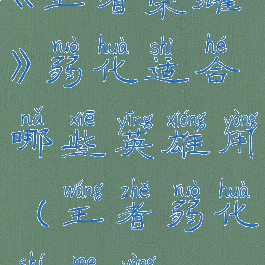 《王者荣耀
ruò huà shì hé
》弱化适合
nǎ xiē yīng xióng yòng
哪些英雄用
wáng zhě ruò huà
（王者弱化
shí me yòng